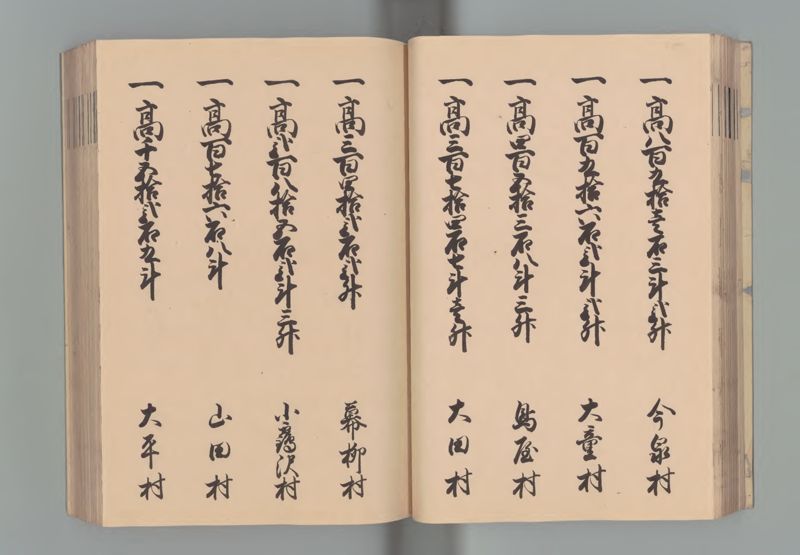 一高八百九拾壱石三斗弐升 今泉村
一高百九拾六石弐斗弐升 大童村
一高四百五拾三石八斗三升 鳥屋村
一高三百七拾四石七斗壱升 大田村
一高三百四拾弐石弐升 幕柳村
一高弐百八拾五石弐斗三升 小鶴沢村
一高百七拾六石八斗 山田村
一高千五拾弐石九斗 大平村